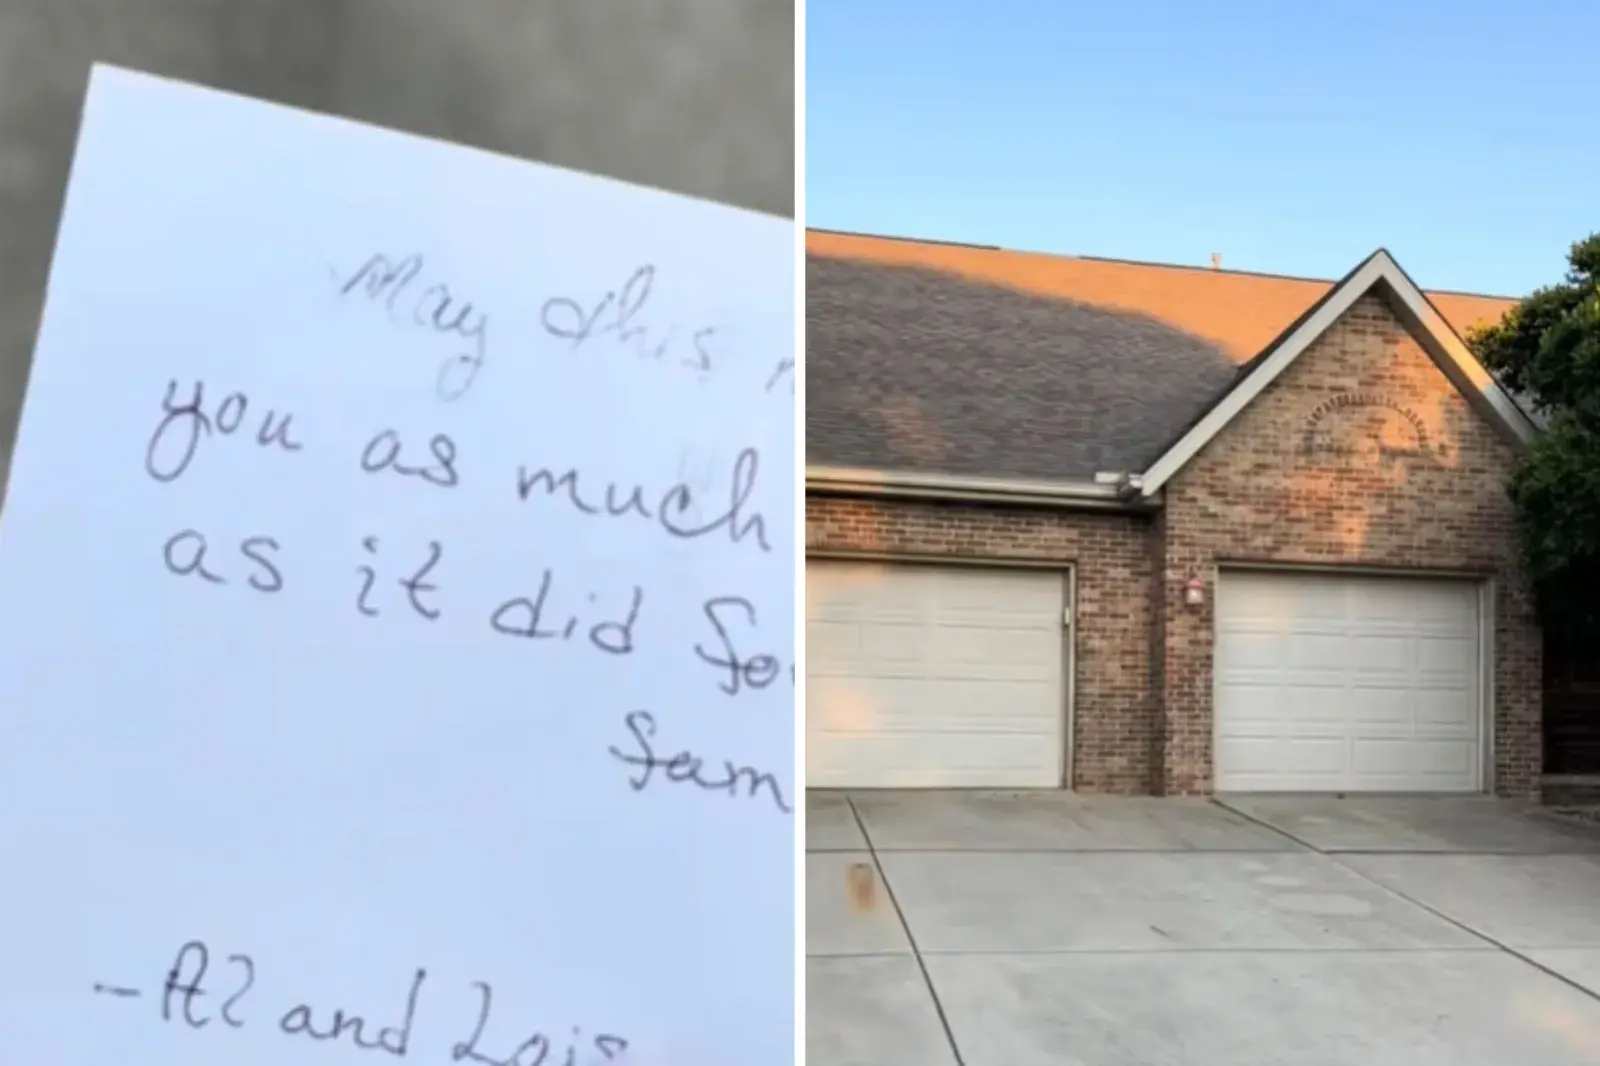 May this
you as much
as it did fo
fam
-Al and Lois